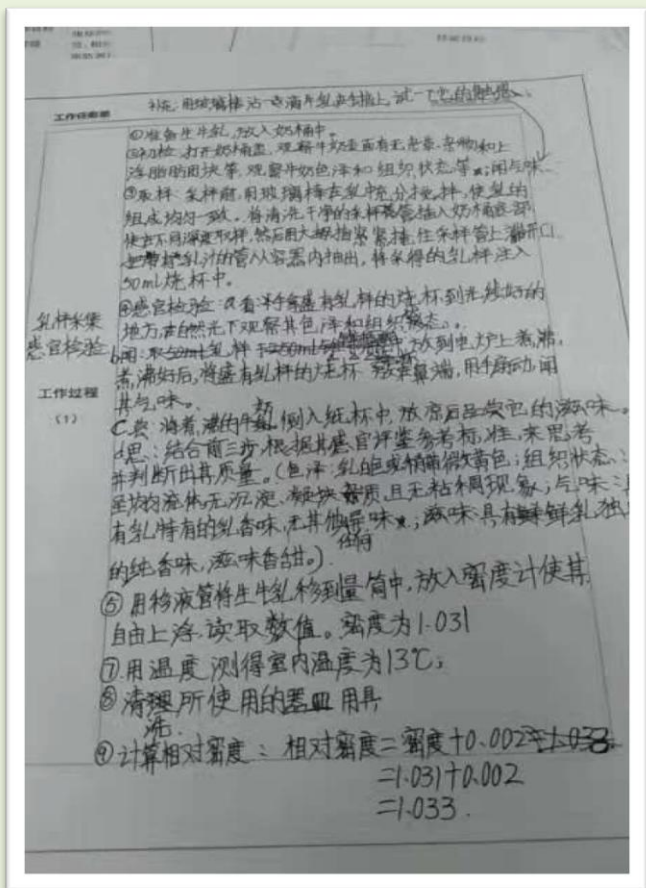 补充:用玻璃棒沾一点滴牛乳在手指上,试一下它的触感。
工作任务单
①准备生牛乳,放入奶桶中。
②初检:打开奶桶盖,观察牛奶里面有无杂草、杂物和上
浮脂肪团块等,观察牛奶色泽和组织状态等;闻气味。
③取样:采样前,用玻璃棒在乳中充分搅拌,使乳的
组成均匀一致。将清洗干净的采样管插入奶桶底部
使在不同深度取样,然后用大拇指紧紧按住采样管上端开口
乳汁的管从容器内抽出,将采得的乳样注入
50ml烧杯中。
乳样采集
感官检验
④感官检验:a看:手拿盛有乳样的烧杯到光线好的
地方,在自然光下观察其色泽和组织状态。
b闻:取50ml乳样于250ml 中,放到电炉上煮沸,
煮沸好后,将盛有乳样的烧杯 鼻端,用手扇动,闻
其气味。
工作过程
(1)
C.尝:将煮沸的牛奶倒入纸杯中,放凉后品尝它的滋味。
d思:结合前三步,根据其感官评鉴参考标准,来思考
并判断出其质量。(色泽:乳白色或稍带微黄色;组织状态:
呈均匀流体,无沉淀、凝块、杂质,且无粘稠现象;气味:具
有乳特有的乳香味,无其他任何异味;滋味:具有鲜乳独
的纯香味,滋味香甜。)
⑤用移液管将生牛乳移到量筒中,放入密度计使其
自由上浮,读取数值。密度为1.031
⑦.用温度 测得室内温度为13℃;
⑧清洗所使用的器皿用具
⑨计算相对密度:相对密度=密度+0.002=1.033
=1.031+0.002
=1.033.